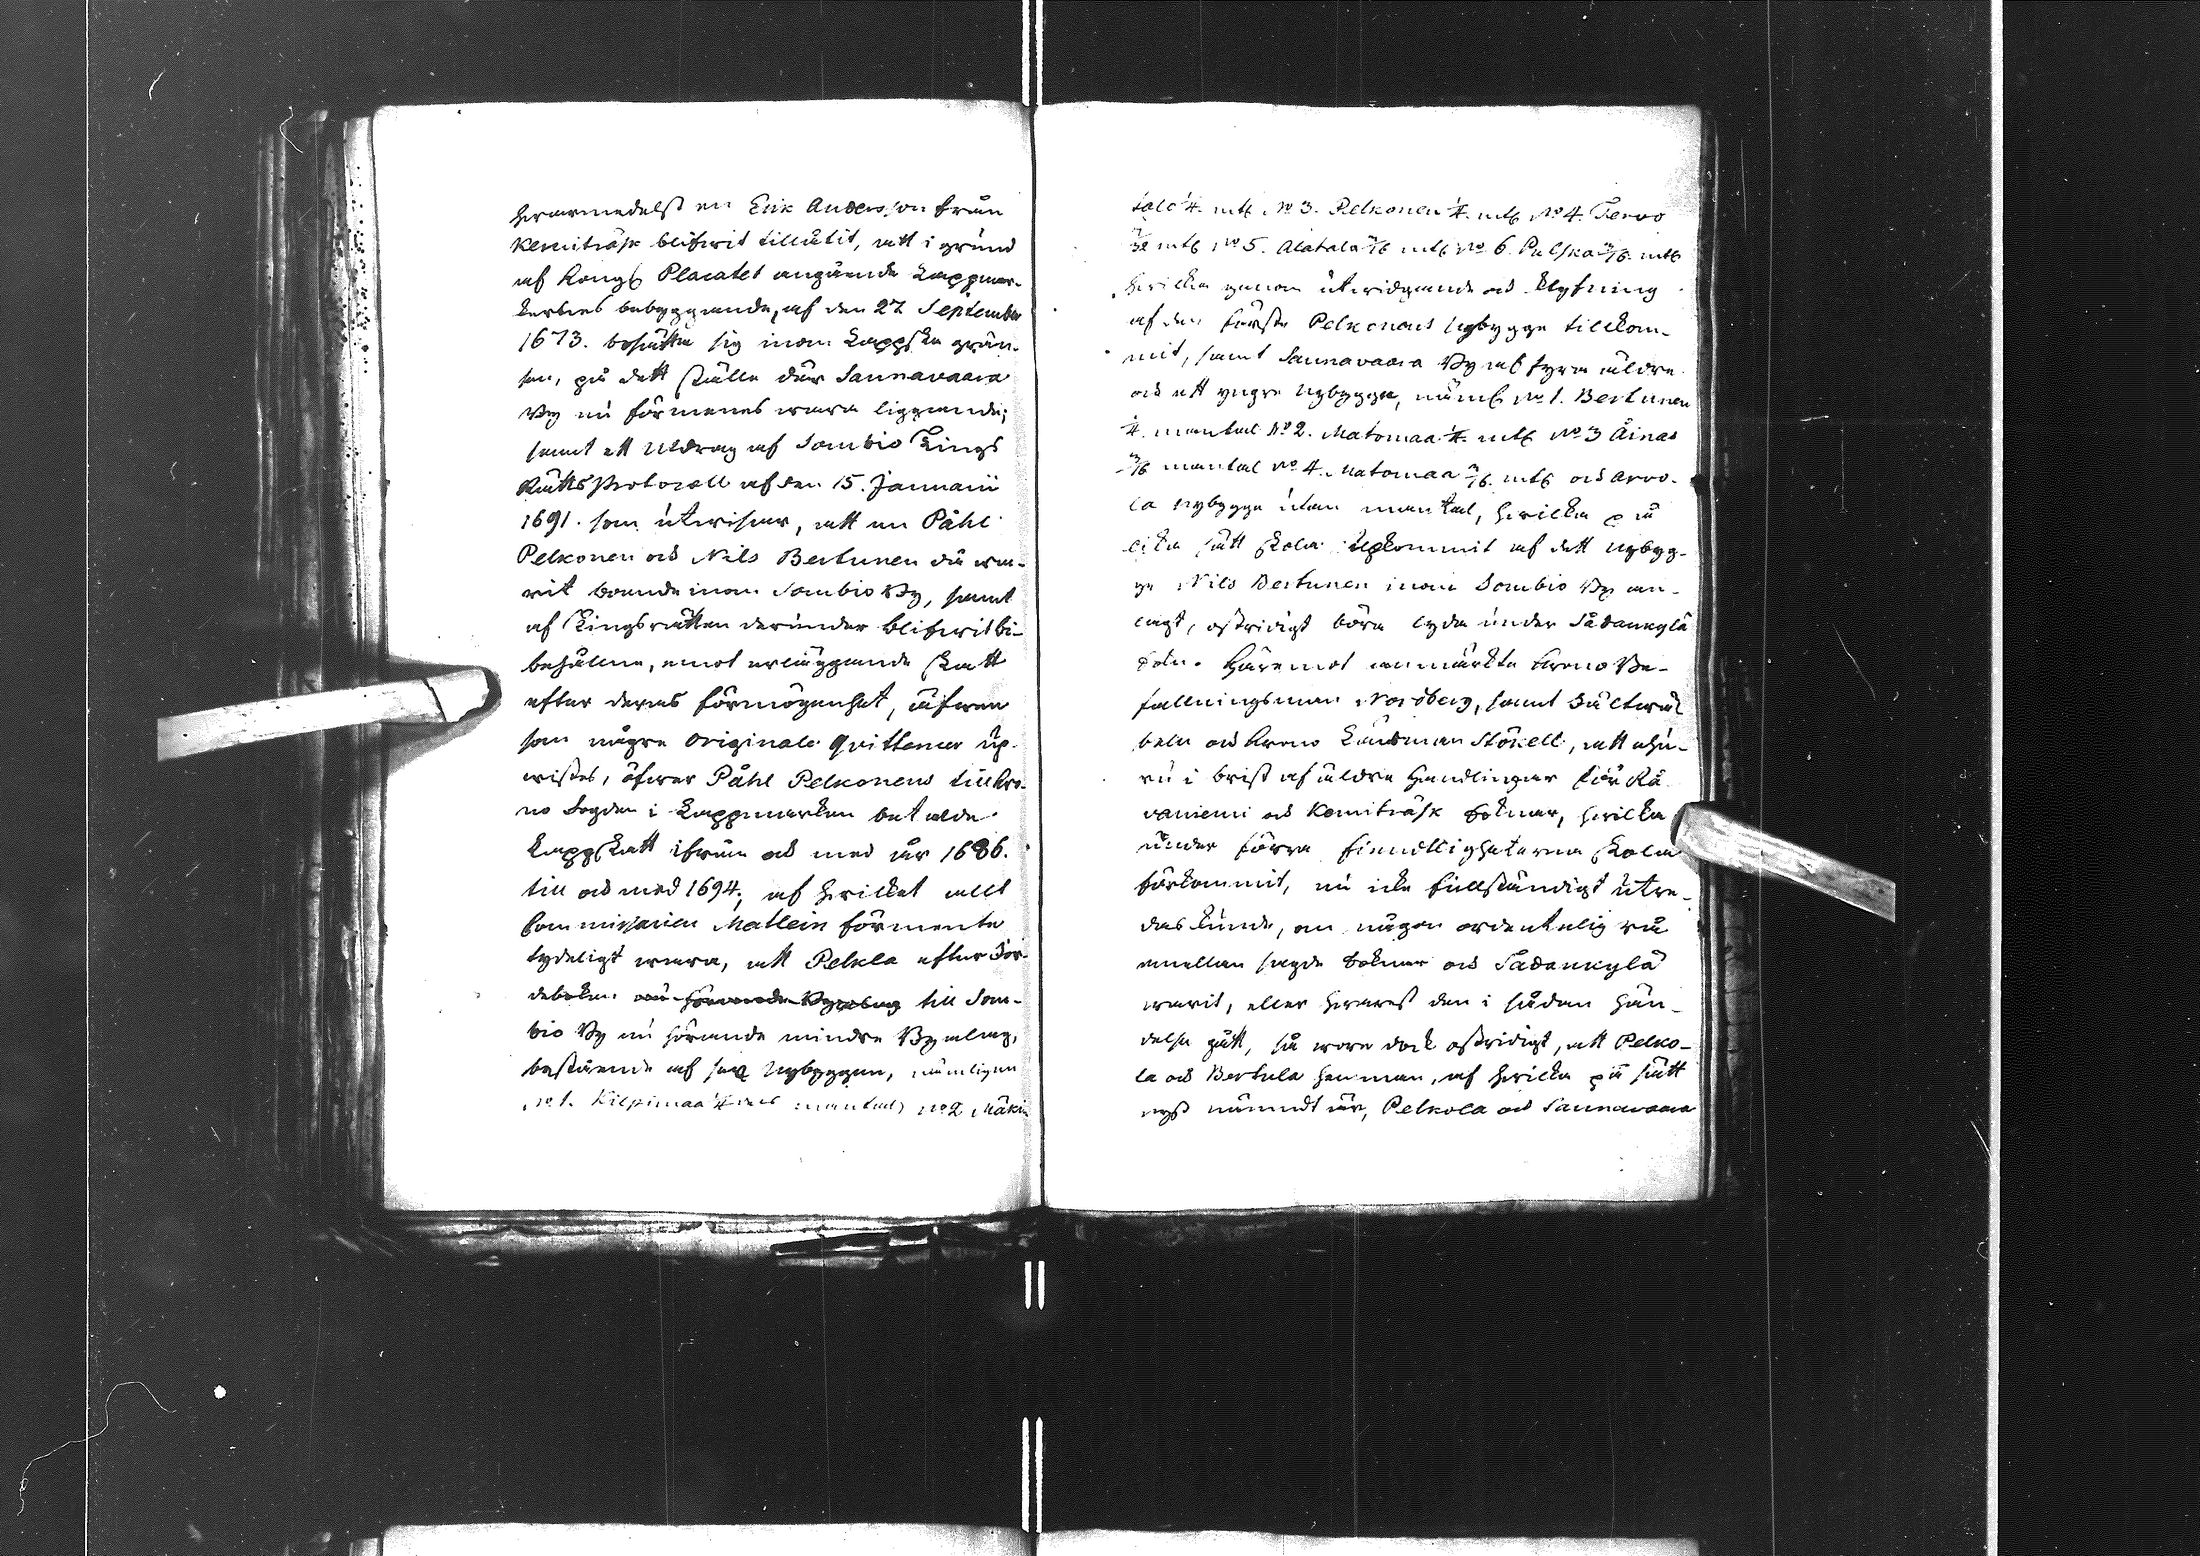 hwarmedelst en Erik Andersson från
Kemiträsk blifwit tillåtit, att i grund
af Kongl Placatet angående Lappmar-
kernes bebyggande, af den 27 September
1673. bosätta sig inom Lappska grän-
sen, på dett ställe där Saunavaara
By nu förmenes wara liggande;
samt ett Utdrag af Sombio Tings
Rätts Protocoll af den 15. Januarii
1691. som utwisar, att en Påhl
Pelkonen och Nils Bertunen då wa-
rit boende inom Sombio By, samt
af Tingsrätten derunder blifwit bi-
behållne, emot erläggande skatt
efter deras förmögenhet, äfwen
som någre Originale Qvittencer up-
wistes, öfwer Påhl Pelkonens till Kro-
no Fogden i Lappmarken betalde
Lappskatt ifrån och med år 1686.
till och med 1694; af hwilket allt
Commissarien Mathlein förmente
tydeligt wara, att Pelkla efter Jor-
deboken nu hörande Byalag till Som-
bio By nu hörande mindre Byalag,
bestående af sex Nybyggen, nämligen
No 1. Kilpimaa 1/4 dels mantal, No 2 Mäkin
talo 1/4. mtl No 3. Pelkonen 1/4. mtl No 4. Tervo
mtl No 5. Alatalo 3/16 mtl No 6. Pulska 3/16. mtl
hwilka genom utwidgande och Klyfning
af den förste Pelkonens Nybygge tillkom-
mit, samt Saunavaara By af fyra äldre
och ett yngre Nybygge, näml No 1. Bertunen
1/4. mantal No 2. Matomaa 1/4. mtl No 3 Äinas
3/16 mantal No 4. Matomaa 3/16. mtl och Arvo-
la Nybygge utan mantal, hwilka på
lika sätt skola upkommit af dett Nybyg-
ge Nils Bertunen inom Sombio By an-
lagt, ostridigt böra lyda under Sådankylä
Sokn. Häremot anmärkte Krono Be-
fallningsman Nordberg, samt Fältwä-
beln och Krono Länsman Stökell, att ehu-
ru i brist af äldre Handlingar för Rå
vaniemi och Kemiträsk Soknar, hwilka
under förra fiendtligheterna skola
förkommit, nu icke fullständigt utre-
das kunde, om någon ordentelig rå
emellan sagde Soknar och Sådankylä
warit, eller hwarest den i sådan hän-
delse gått, så wore dock ostridigt, att Pelko-
la och Bertula hemman, af hwilka på sätt
nyss nämndt är, Pelkola och Saunavaara